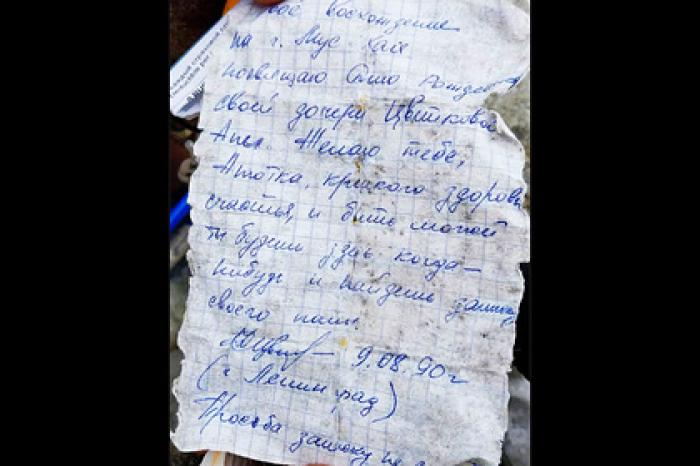 восхождение
на г. Мус Хая
посвящаю
своей дочери Цветковой
Желаю тебе,
крепкого здоровь
счастья, и быть может
ты будешь здесь когда-
нибудь и найдешь записку
своего папы.
9.08.90г
(г Ленинград)
Просьба записку не